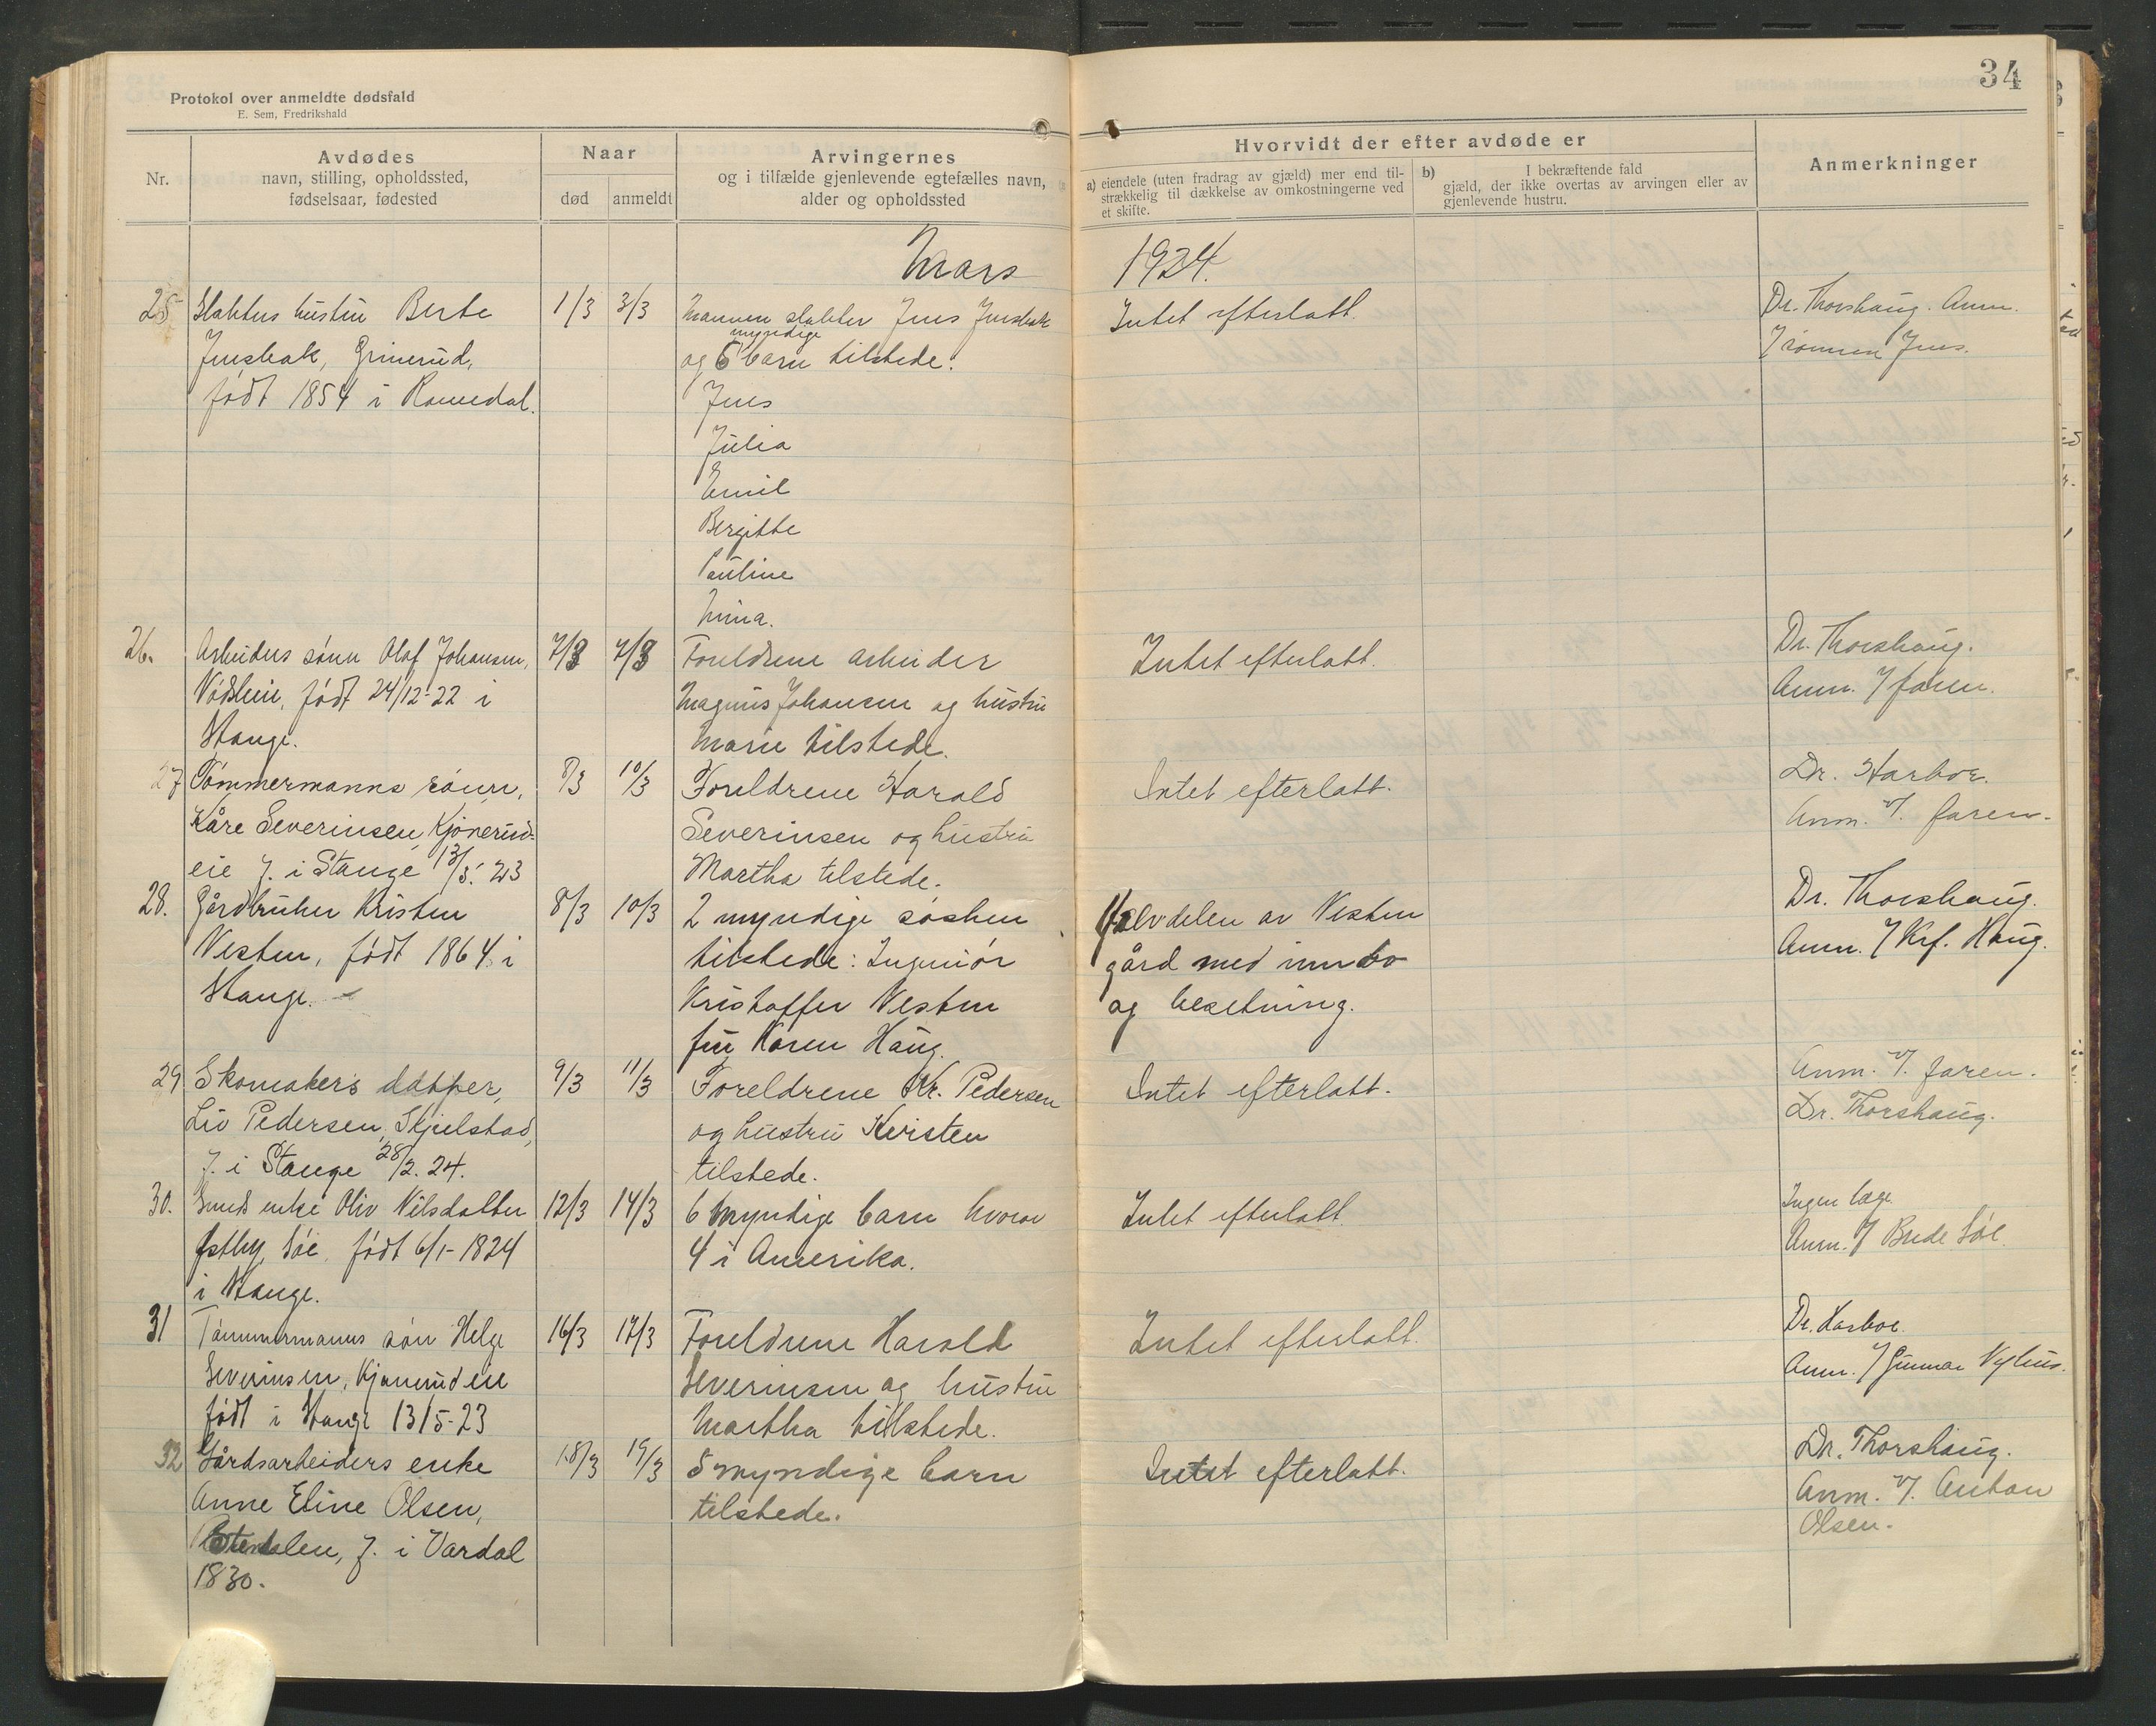 34
Protokol over anmeldte dødsfald
E. Sem, Fredrikshald
Nr.
Avdødes
navn, stilling, opholdssted,
fødselsaar, fødested
Naar
død
anmeldt
Arvingernes
og i tilfælde gjenlevende egtefælles navn,
alder og opholdssted
Hvorvidt der efter avdøde er
a) eiendele (uten fradrag av gjæld) mer end til-
strækkelig til dækkelse av omkostningerne ved
et skifte.
b) I bekræftende fald
gjæld, der ikke overtas av arvingen eller av
gjenlevende hustru.
Anmerkninger
Mars 1924.
25 hustru Berte 1/3 3/3 Mannen Jens Intet efterlatt. Dr. Thorshaug. Anm.
Grinerud, myndige
og 6 barn tilstede. Jens.
født 1854 i Romedal. Jens
Julia
Emil
Bergitte
Pauline
Mina.
26. Arbeiders sönn Olaf Johansen, 7/3 7/3 Foreldrene arbeider Intet efterlatt. Dr. Thorshaug.
født 24/12-22 i Magnus Johansen og hustru Anm. f faren.
Stange. Marie tilstede.
27 Tömmermanns sönn, 8/3 10/3 Foreldrene Harald Intet efterlatt. Dr. Harboe.
Kåre Severinsen, Kjönerud- Severinsen og hustru Anm. v/. faren.
eie f. i Stange 13/5. 23 Martha tilstede.
28. Gårdbruker Kristen 8/3 10/3 2 myndige sösken Halvdelen av Vesten Dr. Thorshaug.
Vesten, født 1864 i tilstede: Ingeniör gård med innbo Anm. f Krf. Haug.
Stange. Kristoffer Vesten og besetning.
fru Karen Haug.
29 Skomakers datter, 9/3 11/3 Foreldrene Kr. Pedersen Intet efterlatt. Anm. v/. faren.
Liv Pedersen, Skjelstad, og hustru Kristen Dr. Thorshaug.
f. i Stange 28/2. 24. tilstede.
30. Smeds enke Oliv Nilsdatter 12/3 14/3 6 myndige barn hvorav Intet efterlatt Ingen læge.
Østby, født 6/1-1824 4 i Amerika. Anm. f
i Stange.
31 Tömmermanns sön Helge 16/3 17/3 Foreldrene Harald Intet efterlatt. Dr. Harboe.
Severinsen, Kjönerudeie Severinsen og hustru Anm. f Gunnar Nyhus.
født i Stange 13/5-23 Martha tilstede.
32 Gårdsarbeiders enke 18/3 19/3 5 myndige barn Intet efterlatt. Dr. Thorshaug.
Anne Eline Olsen, tilstede. Anm. v/. Anton
f. i Vardal Olsen.
1830.